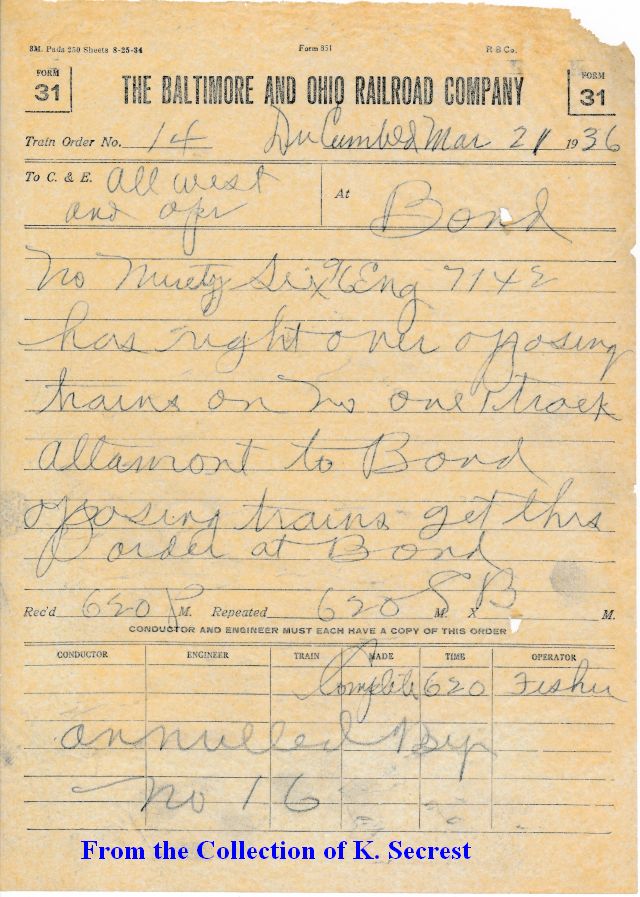 3M. Pads 250 Sheets 8-25-34 Form 831 R B Co.
FORM 31 THE BALTIMORE AND OHIO RAILROAD COMPANY FORM 31
Train Order No. 14 Cumbld Mar 21 1936
To C. & E. All west At Bond
and opr
No Ninety Six 96 Eng 7142
has right over opposing
trains on No one 1 track
Altamont to Bond
opposing trains get this
order at Bond
Rec'd 620 P M. Repeated 620 M. X M.
CONDUCTOR AND ENGINEER MUST EACH HAVE A COPY OF THIS ORDER
CONDUCTOR ENGINEER TRAIN MADE TIME OPERATOR
Complete 620 Fisher
annulled by
No 16
From the Collection of K. Secrest